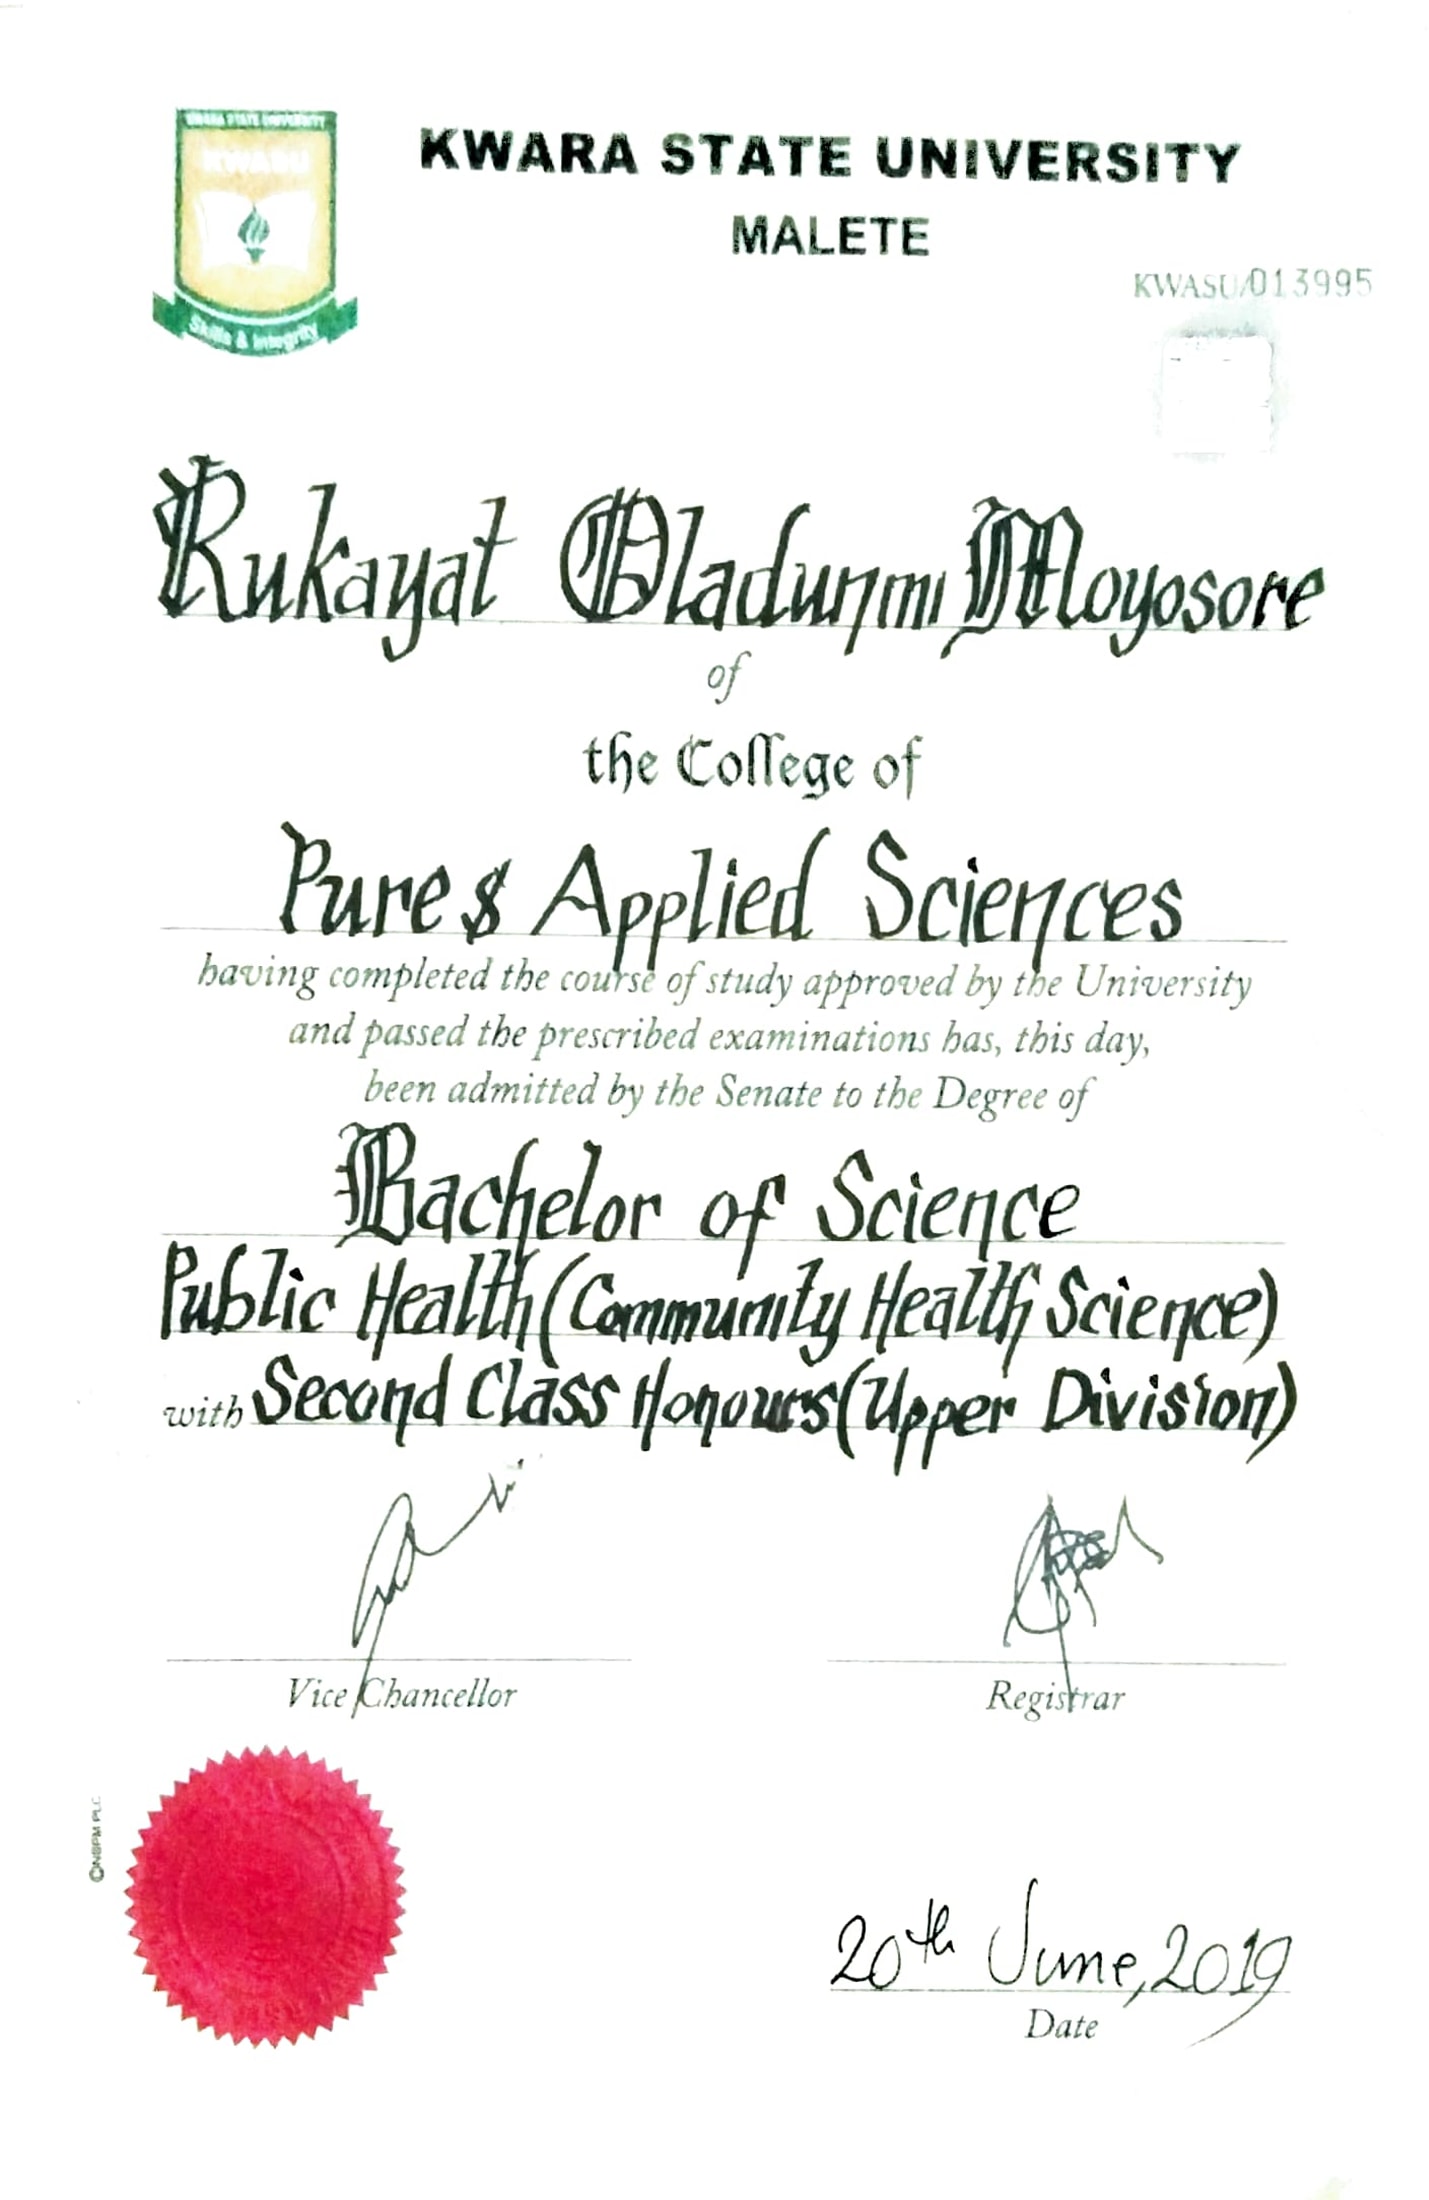 KWARA STATE UNIVERSITY
KWASU
KWARA STATE UNIVERSITY
MALETE
Skills & Integrity
KWASU/013995
Rukayat Oladunmi Moyosore
of
the College of
Pure & Applied Sciences
having completed the course of study approved by the University
and passed the prescribed examinations has, this day,
been admitted by the Senate to the Degree of
Bachelor of Science
Public Health (Community Health Science)
with Second Class Honours (Upper Division)
Vice Chancellor
Registrar
©NSPM PLC
20th June, 2019
Date